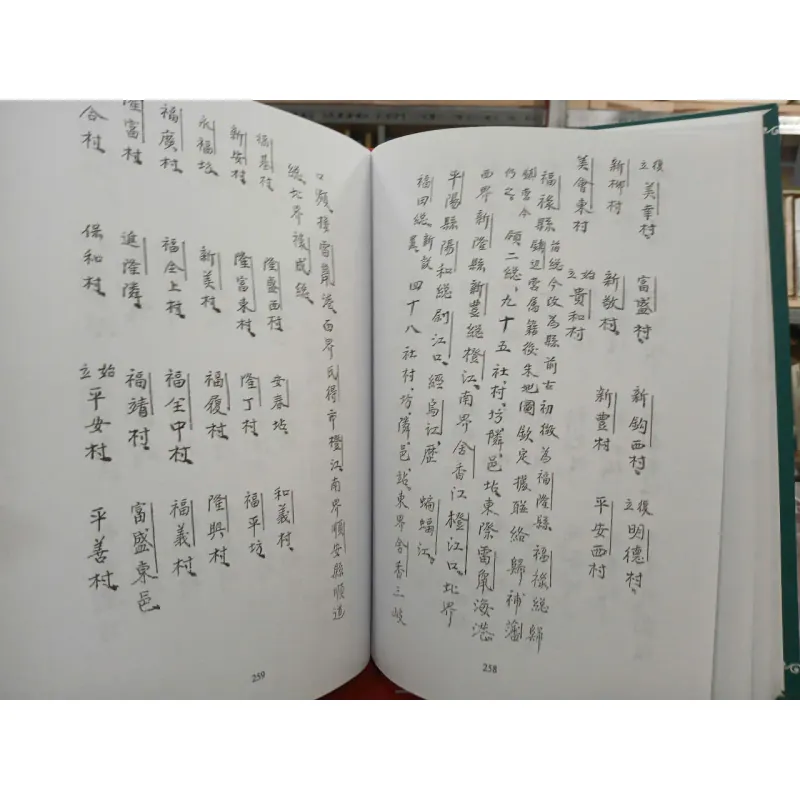 復立美幸村 富盛村 新鈎西村 復立明德村
新柳村 新敬村 新豊村 平安西村
美會東村 始立貴和村
福祿縣 今改為縣前古初徵為福隆縣福祿総歸
鎮邊營為籍後朱地圖欽定援聯絡歸補藩
仍之 領二総九十五社村坊隣邑坫東際雷鼠海港
西界新隆縣新豊総橙江南界舍香江橙江口北界
平陽縣陽和総 江口經烏江歷蝙蝠江
福田総新設 四十八社村坊隣邑坫東界舍香三岐
258
口 接雷鼠港西界民得市橙江南界順安縣順道
総北界後成総
福基村 隆盛西村 安春坫 和義村
新安村 隆富東村 隆丁村 福平坊
永福坊 新美村 福履村 隆興村
福廣村 福全上村 福全中村 福義村
隆富村 進隆隣 福靖村 富盛東邑
合村 保和村 始立平安村 平善村
259